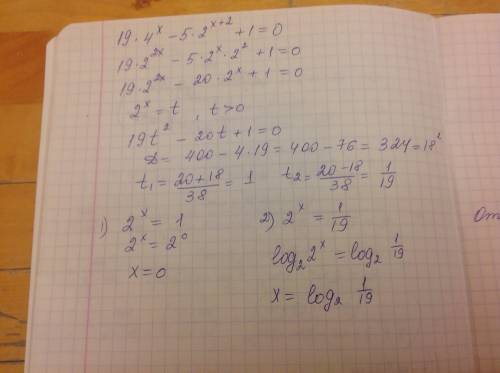 19·4^x − 5·2^(x+2) + 1 = 0
19·2^(2x) − 5·2^x·2² + 1 = 0
19·2^(2x) − 20·2^x + 1 = 0
2^x = t , t > 0
19t² − 20t + 1 = 0
D = 400 − 4·19 = 400 − 76 = 324 = 18²
t₁ = (20+18)/38 = 1 t₂ = (20−18)/38 = 1/19
1) 2^x = 1
2^x = 2⁰
x = 0
2) 2^x = 1/19
log₂ 2^x = log₂ 1/19
x = log₂ 1/19
От